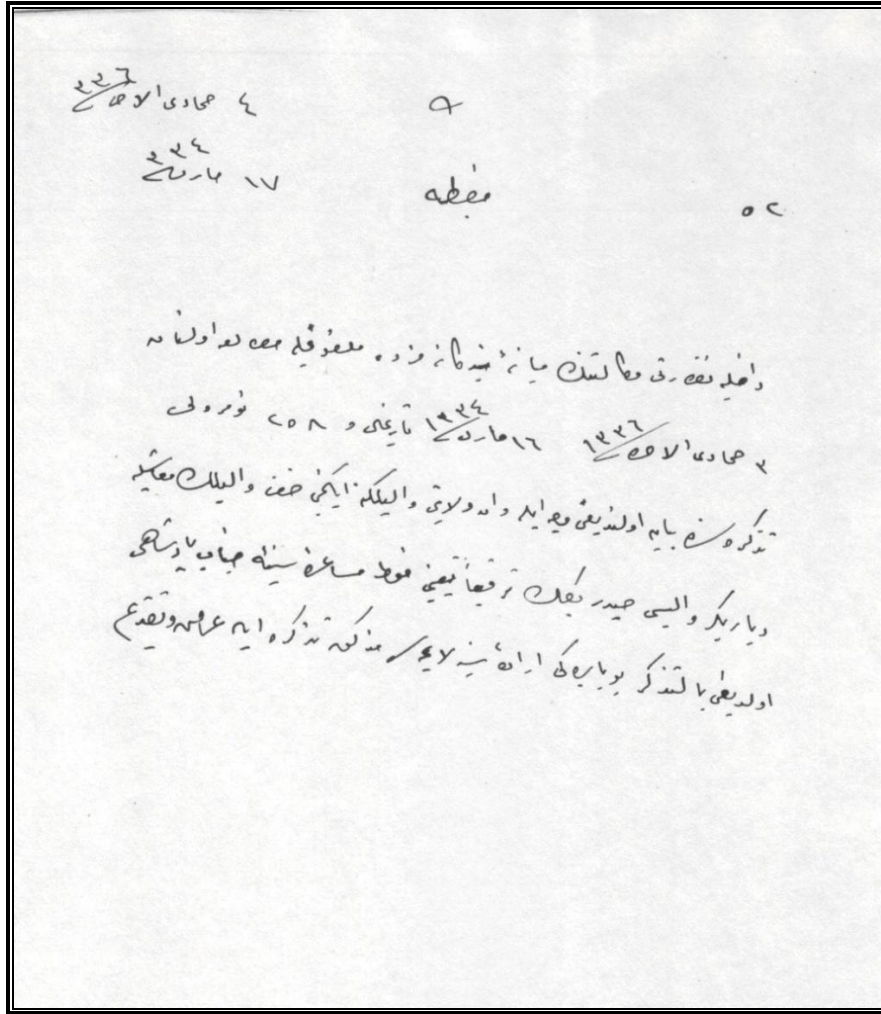 ٤ جمادى الاخره ٣٣٦
١٧ مارت ٣٣٤
مضبطه
٥٢
داخليه نظارتى وكالتنك ميانهٔ بندگانه مزده اولنان
٣ جمادى الاخره ١٣٣٦ ١٦ مارت ١٣٣٤ تاريخلى و ٢٥٨ نومرولى
تذكره سنده بيان اولنديغى وجهله وان ولايتى واليلكنه ايكنجى صنف واليلك معاشيله
ديار بكر واليسى حيدر بكك ترفيعاً تعيينى منوط مساعدهٔ سنيهٔ جناب پادشاهى
اولديغى بالتذكر بوبابده كى ارادهٔ سنيه لايحه سى مذكور تذكره ايله عرض و تقديم